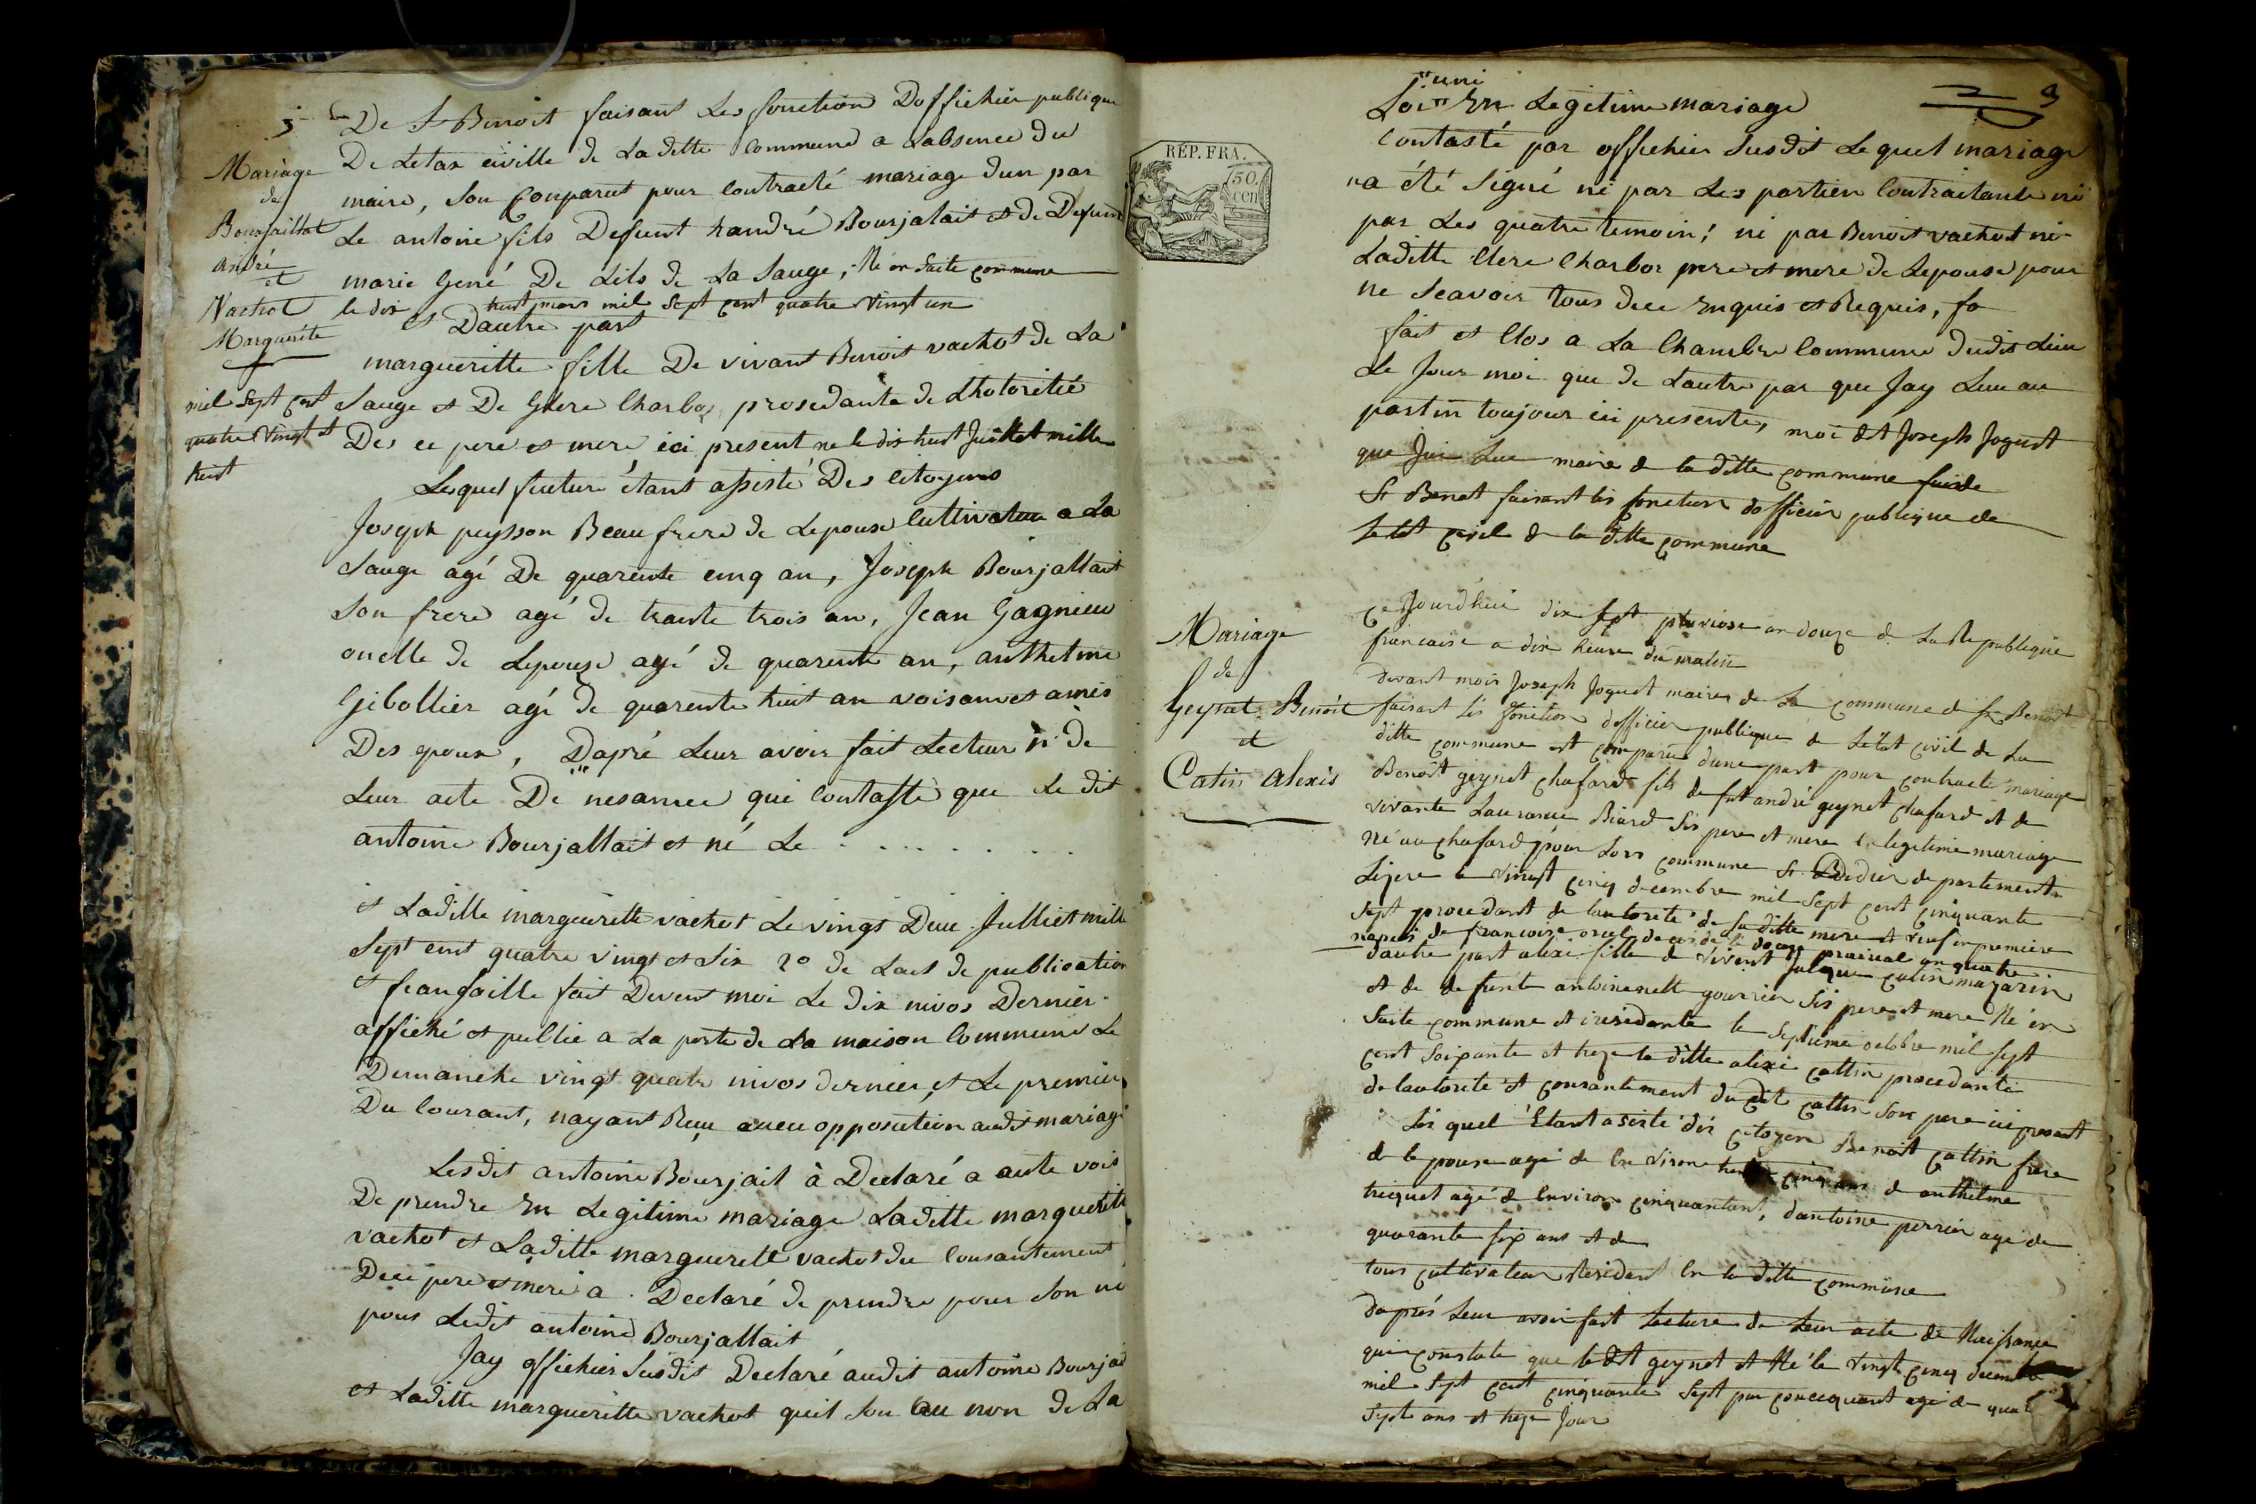 3
De St Benoit faisant Les fonction Doffichier publique
De Letax civille de La ditte Commune a Labsence du
maire, Son Conparut pour Contracté mariage dun par
Le antoine fils Defunt handré Bourjalait et de Defunt
marie Gené De Lils de La Sauge, Né en Suite Commune
le dix huit mars mil Sept cent quatre vingt un
et Dautre part
margueritte fille De vivant Benoit vachot de La
Sauge et De Clere Charbor prosedante de Lhotorité
Des ce pere et mere ici present ne le dix huit Juillet mille
Mariage
de
Bourjaillat
André
et
Vachot
Marguerite
mil Sept cent
quatre vingt et
huit
Lesquel feuture étant assisté Des Citoyens
Joseph peysson Beau frere de Lepouse Cultivateur a La
Sauge agé De quarente cinq an, Joseph Bourjallait
Son frere agé de trante trois an, Jean Gagnieu
onclle de Lepouse agé de quarente an, anthelme
Gibollier agé de quarente huit an voisain et amis
Des epoux, Dapré Leur avoir fait Lecteur De
Leur acte De nesance qui Contasté que Le dit
antoine Bourjallait et né Le . . . . . . . .
et Laditte margueritte vachot Le vingt Deue Julliet mille
Sept cent quatre vingt et Six 2° de Lact de publication
et feansaille fait Devent moi Le dix nivos Dernier
affiché et publié a La porte de La maison Commune Le
Demanche vingt quatre nivos dernier, et Le premier
Du Courant, nayant Reçu aucu opposition audit mariage
Lesdit antoine Bourjail à Declaré a aute vois
De prendre En Legitime mariage Laditte margueritte
vachot et Laditte margueritte vachot du Consantement
Dece pere et mere a Declaré de prendre pour Son
pous Ledit antoine Bourjallait
Jay offichier Susdit Declaré audit antoine Bourjail
et Laditte margueritte vachot quil Son au nom de La
uni
Loi En Legitime mariage
3
Contasté par offichier Susdit Lequel mariage
na été Signé ni par Les partien Contraitante ni
par Les quatre temoin, ni par Benoit vachot ni
Laditte Clere Charbor pere et mere de Lepouse pour
ne Scavoir tous dece Enquis et Requis, fo
fait et Clos a La Chambre Commune dudit Lieu
Le Jour moi que de Lautre par que Jay Lue au
partin toujour ici presente, moi dit Joseph Joguet
que Jai Lue maire de la ditte commune
St Benoit faisant les fonction dofficier publique de
Letat Civil de la ditte commune
RÉP. FRA.
50.
cen
Mariage
de
Geynet Benoit
et
Catin Alexis
Ce Jourdhui dix sept pluviose an douze de La Republique
francaise a dix heure du matin
devant mois Joseph Joguet maires de La commune de St Benoit
faisant lés fonction dofficier publique de Létat civil de La
ditte commune est comparu dune part pour contracté mariage
Benoit geynet chafard fils de fut andré geynet chafard et de
vivante Laurance Biard Sis pere et mere En legitime mariage
né au chafard pour Lors commune St Didier departement
Lizere le vingt cinq decembre mil Sept cent cinquante
Sept procedant de lautorité de Saditte mere et veuf en premiere
napces de francoise decede le douze prairial an quatre
dautre part alexi fille de vivent Jacque Catin mazarin
et de defunte antoinenett gourrier Sis pere et mere Né en
Suite commune et residante le Septieme octobre mil Sept
cent Soixante et treze la ditte alexi cattin procedante
de lautorité et consantement du dit cattin Son pere ici present
Les quel Etant asisté des citoyen Benoit Cattin frere
de lepouse agé de En viron cinq ans de anthelme
tricquet agé de Environ cinquantans, dantoine perrin agé de
quarante six ans et de
tous cultivateur Residant En la ditte commune
dapres Leur avoir fait Lecture de Leur acte de Naissance
qui constate que le dit geynet et Né le vingt cinq decembre
mil Sept cent cinquante Sept par concequent agé de
Sept ans et treze Jour